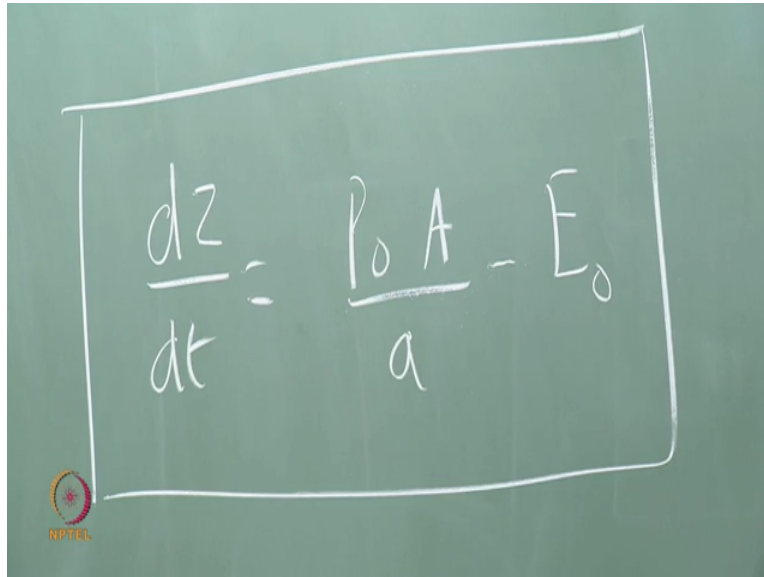 dz/dt = P₀ A/a - E₀
NPTEL